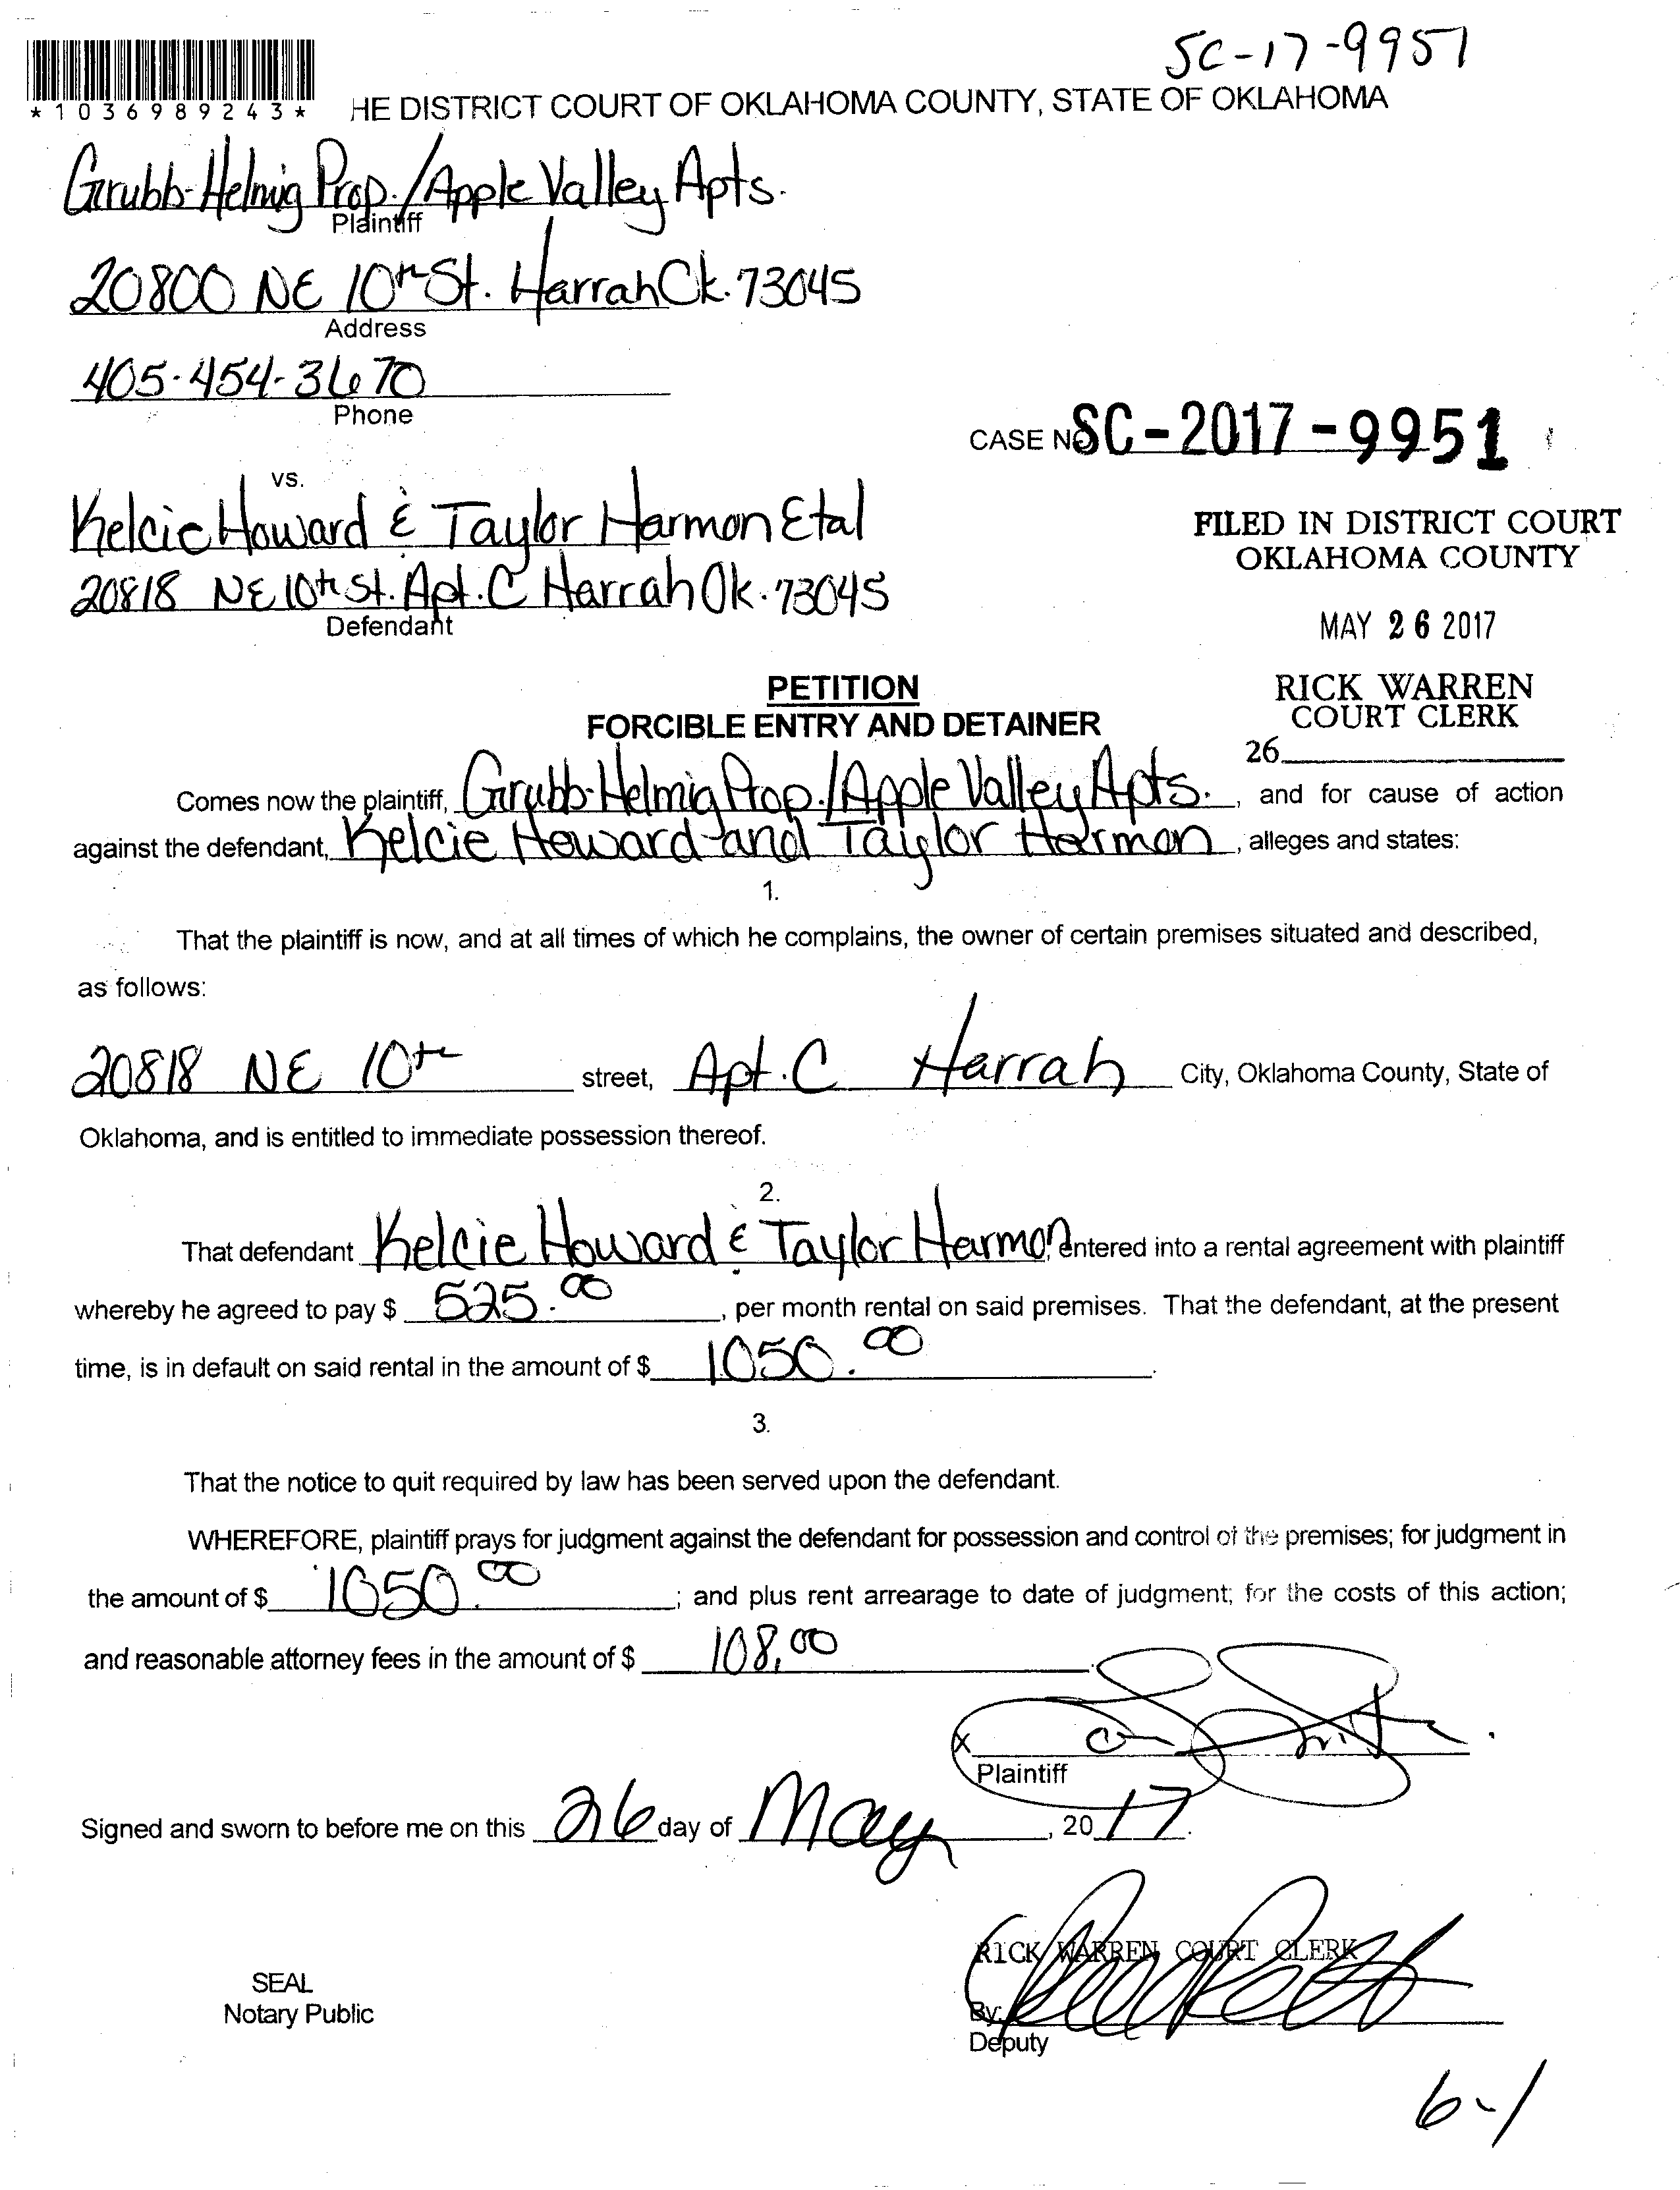 SC-17-9951
*1036989243*
HE DISTRICT COURT OF OKLAHOMA COUNTY, STATE OF OKLAHOMA
Grubb-Helmig Prop./Apple Valley Apts.
Plaintiff
20800 NE 10th St. Harrah Ok. 73045
Address
405-454-3670
Phone
CASE No SC-2017-9951
vs.
Kelcie Howard & Taylor Harmon Etal
20818 NE 10th St. Apt. C Harrah Ok. 73045
Defendant
FILED IN DISTRICT COURT
OKLAHOMA COUNTY
MAY 26 2017
RICK WARREN
COURT CLERK
26
PETITION
FORCIBLE ENTRY AND DETAINER
Comes now the plaintiff, Grubb-Helmig Prop./Apple Valley Apts. , and for cause of action
against the defendant, Kelcie Howard and Taylor Harmon , alleges and states:
1.
That the plaintiff is now, and at all times of which he complains, the owner of certain premises situated and described,
as follows:
20818 NE 10th street, Apt. C Harrah City, Oklahoma County, State of
Oklahoma, and is entitled to immediate possession thereof.
2.
That defendant Kelcie Howard & Taylor Harmon, entered into a rental agreement with plaintiff
whereby he agreed to pay $ 525.00 , per month rental on said premises. That the defendant, at the present
time, is in default on said rental in the amount of $ 1050.00 .
3.
That the notice to quit required by law has been served upon the defendant.
WHEREFORE, plaintiff prays for judgment against the defendant for possession and control of the premises; for judgment in
the amount of $ 1050.00 ; and plus rent arrearage to date of judgment; for the costs of this action;
and reasonable attorney fees in the amount of $ 108.00 .
X
Plaintiff
Signed and sworn to before me on this 26 day of May , 20 17.
RICK WARREN COURT CLERK
SEAL
Notary Public
By:
Deputy
6-1